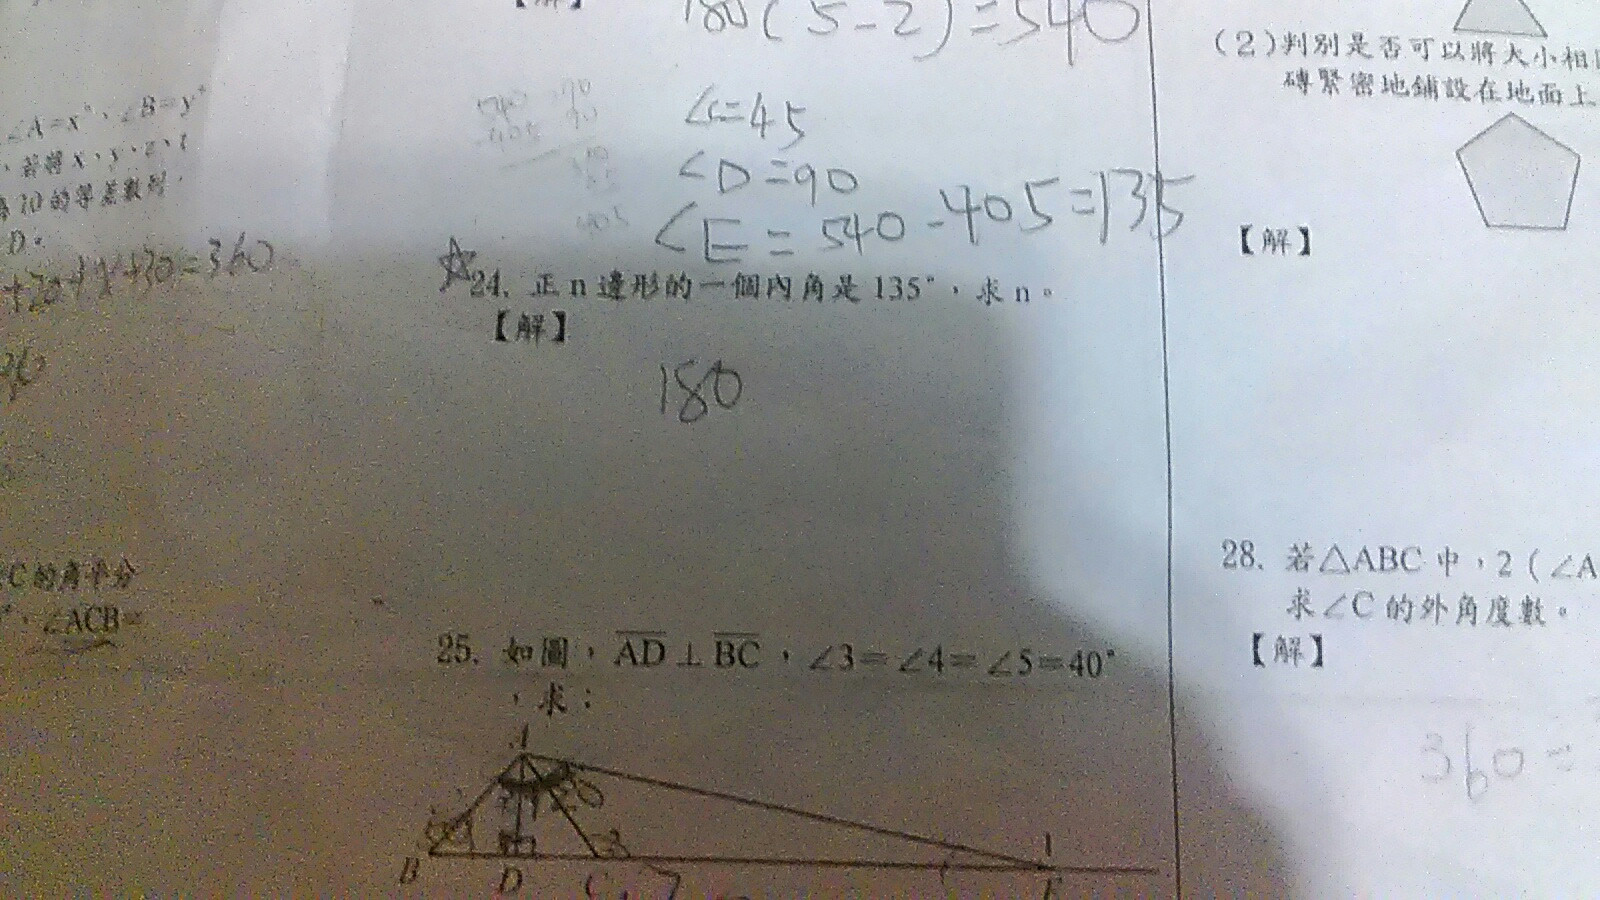 【解】
180(5-2)=540
∠A=x°、∠B=y°
,若將x、y、z、t
10的等差數列,
D。
=360
∠C=45
∠D=90
∠E=540-405=135
☆24. 正n邊形的一個內角是135°,求n。
【解】
180
C的角平分
,∠ACB=
25. 如圖,AD⊥BC,∠3=∠4=∠5=40°
,求:
A
B
D
C
1
(2)判別是否可以將大小相
磚緊密地鋪設在地面上
【解】
28. 若△ABC中,2(∠A
求∠C的外角度數。
【解】
360=